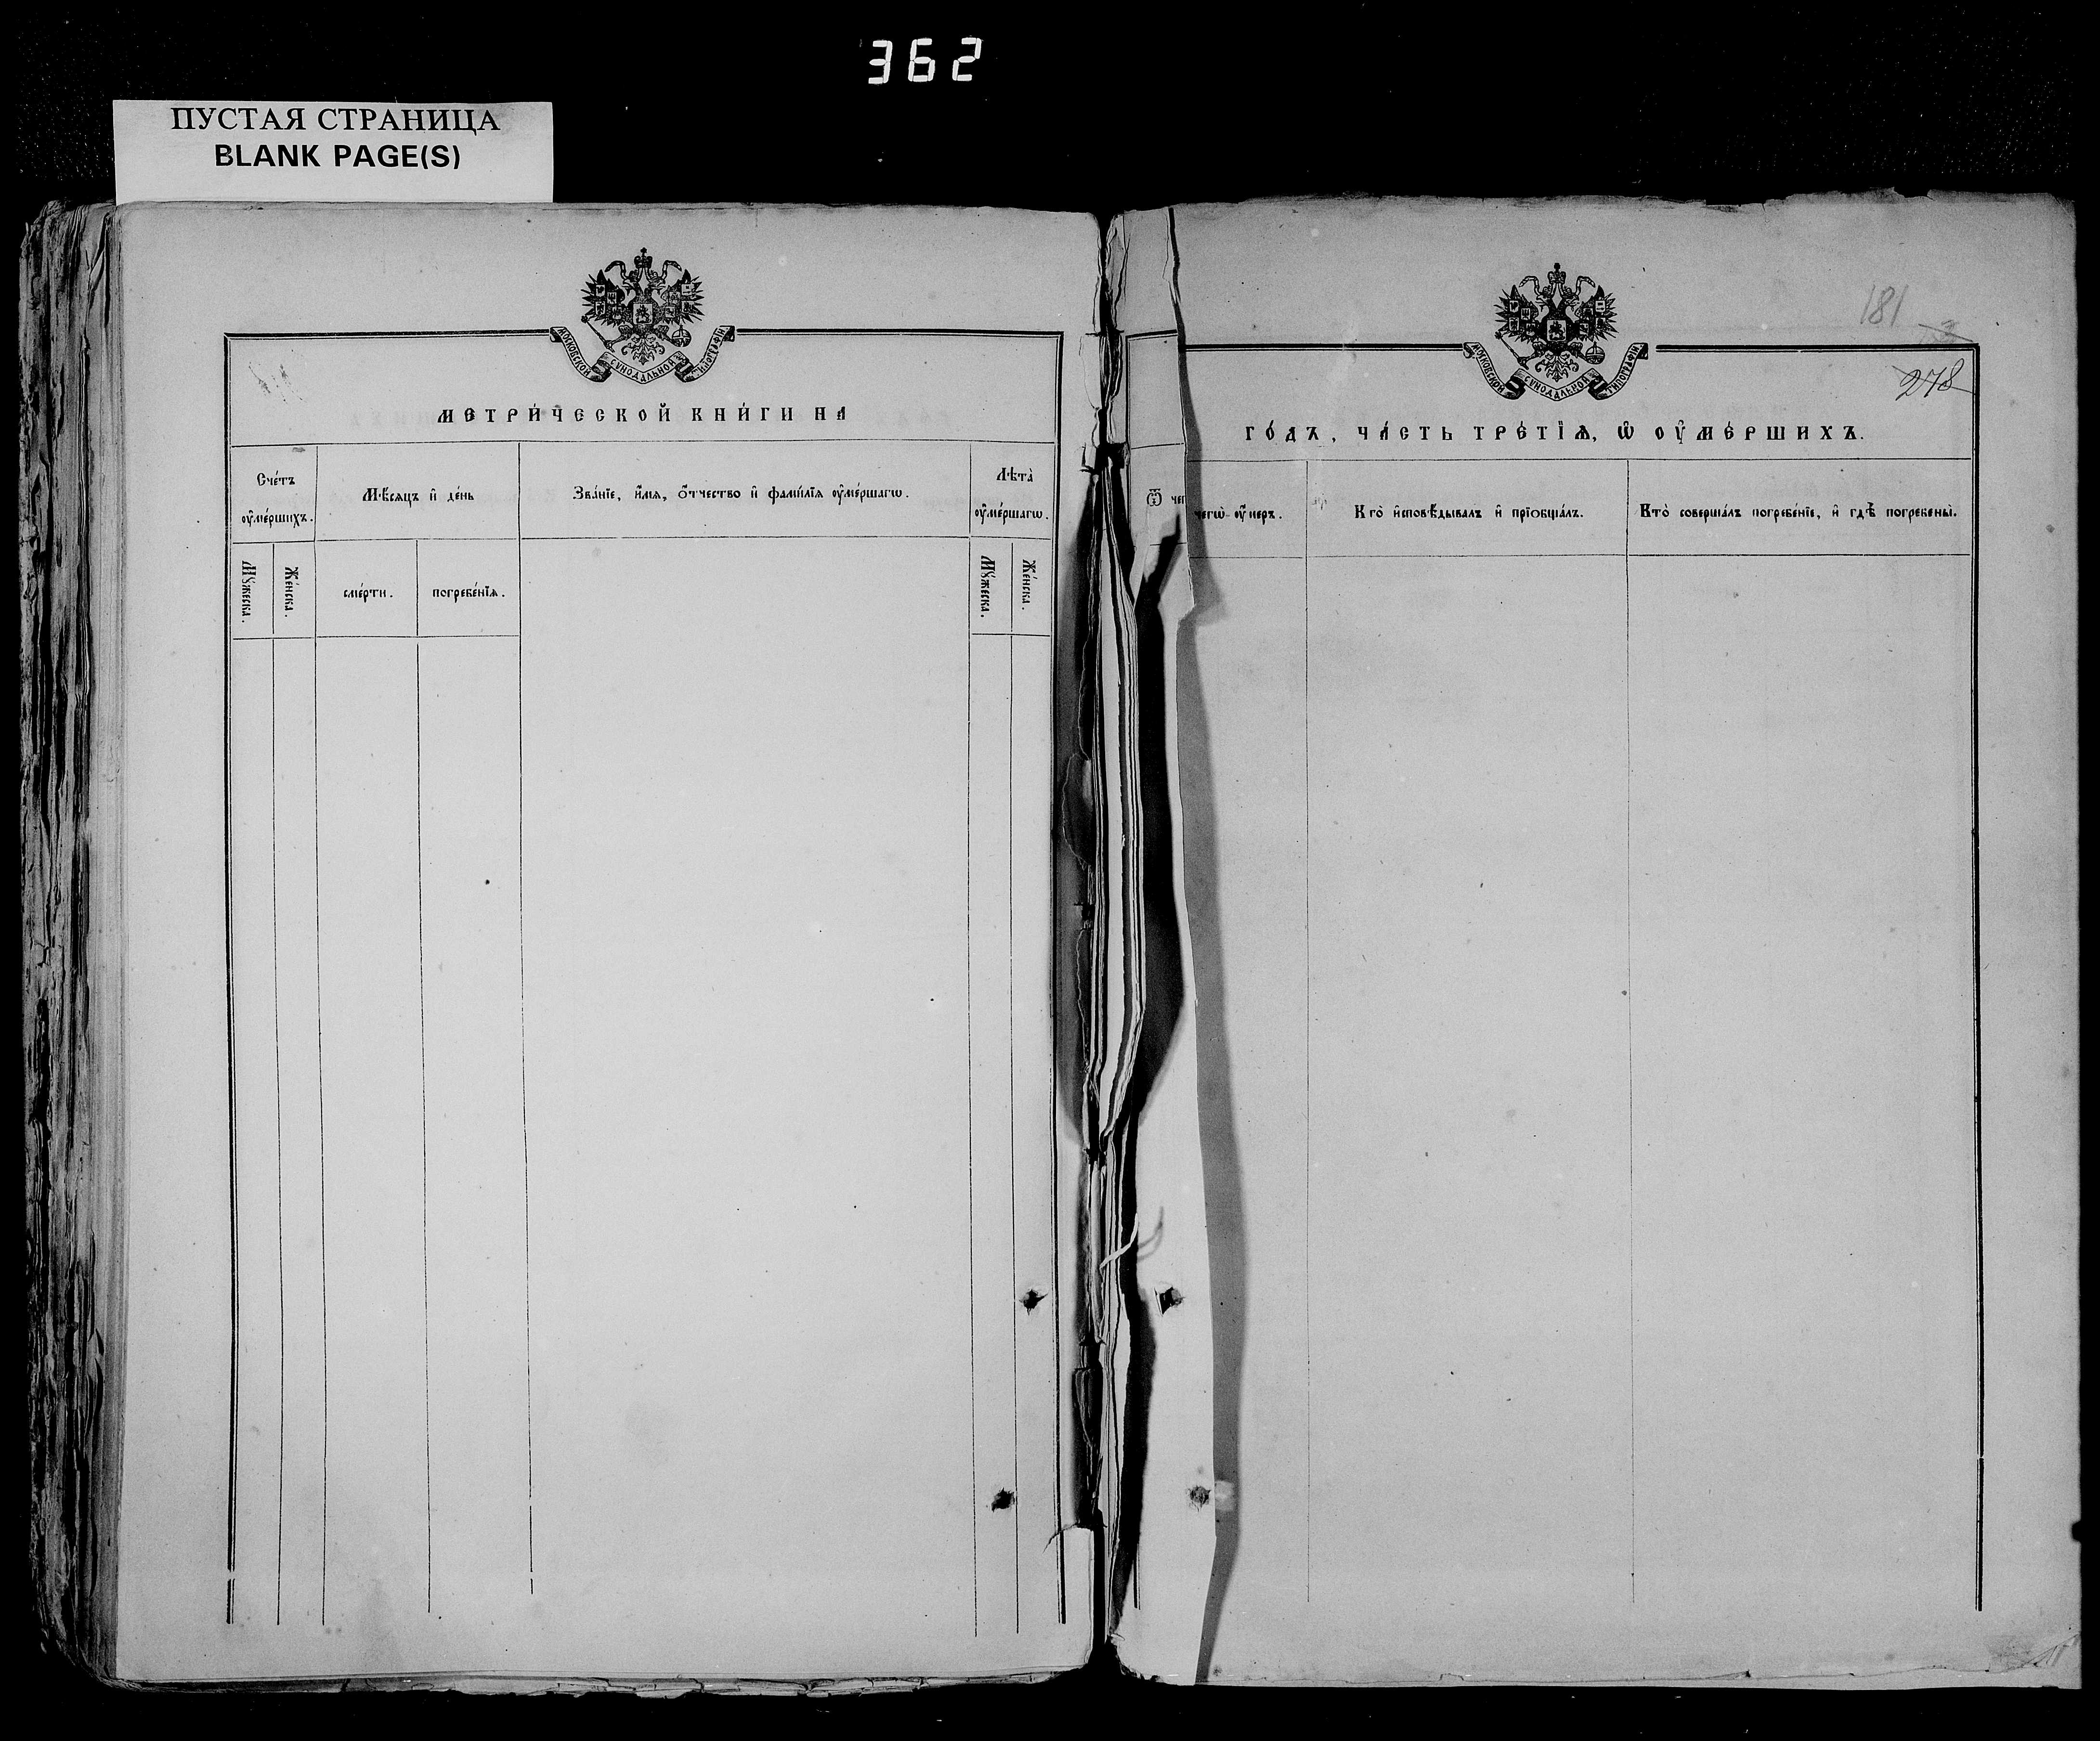 362
ПУСТАЯ СТРАНИЦА
BLANK PAGE(S)
МОСКОВСКОЙ СѴНОДАЛЬНОЙ ТИПОГРАФІИ
МЕТРИ́ЧЕСКОЙ КНИ́ГИ НА
Сче́тъ ᲂу҆ме́ршихъ.
Мѣ́сяцъ и҆ де́нь
Зва́нїе, и҆́мя, ѻ҆́тчество и҆ фами́лїя ᲂу҆ме́ршагѡ.
Лѣ́та ᲂу҆ме́ршагѡ.
Мꙋ́жеска.
Же́нска.
сме́рти.
погребе́нїя.
Мꙋ́жеска.
Же́нска.
181
278
МОСКОВСКОЙ СѴНОДАЛЬНОЙ ТИПОГРАФІИ
ГО́ДЪ, ЧА́СТЬ ТРЕ́ТЇѦ, Ѡ҆ ОУ҆МЕ́РШИХЪ.
Ѿ чег
чегѡ̀ ᲂу҆́меръ.
Кто̀ и҆сповѣ́дывалъ и҆ прїѻбща́лъ.
Кто̀ соверша́лъ погребе́нїе, и҆ гдѣ̀ погребены̀.